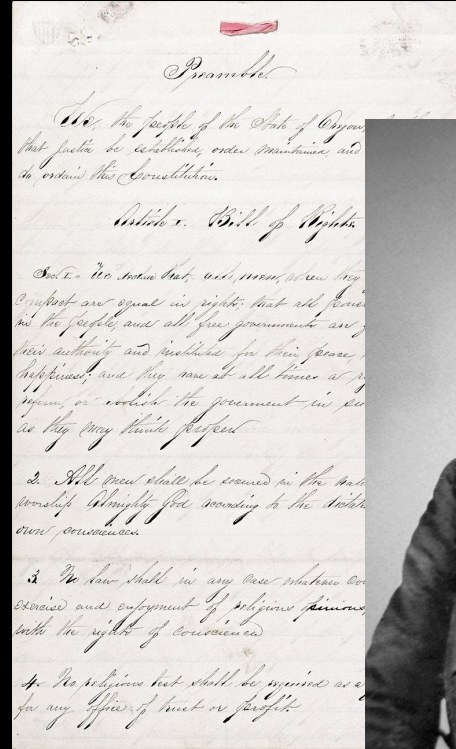 Preamble.
We, the people of the State of Oregon,
that Justice be established, order maintained, and
do ordain this Constitution.
Article I. Bill of Rights.
Sect 1. We declare that, all men, when they
compact are equal in rights: that all power
in the people, and all free governments are
their authority and instituted for their peace
happiness; and they have at all times a
reform, or abolish the government in
as they may think proper.
2. All men shall be secured in the
worship Almighty God according to the
own consciences.
3. No law shall in any case whatever
exercise and enjoyment of religious opinions,
with the rights of conscience
4. No religious test shall be required as a
for any office of trust or profit.